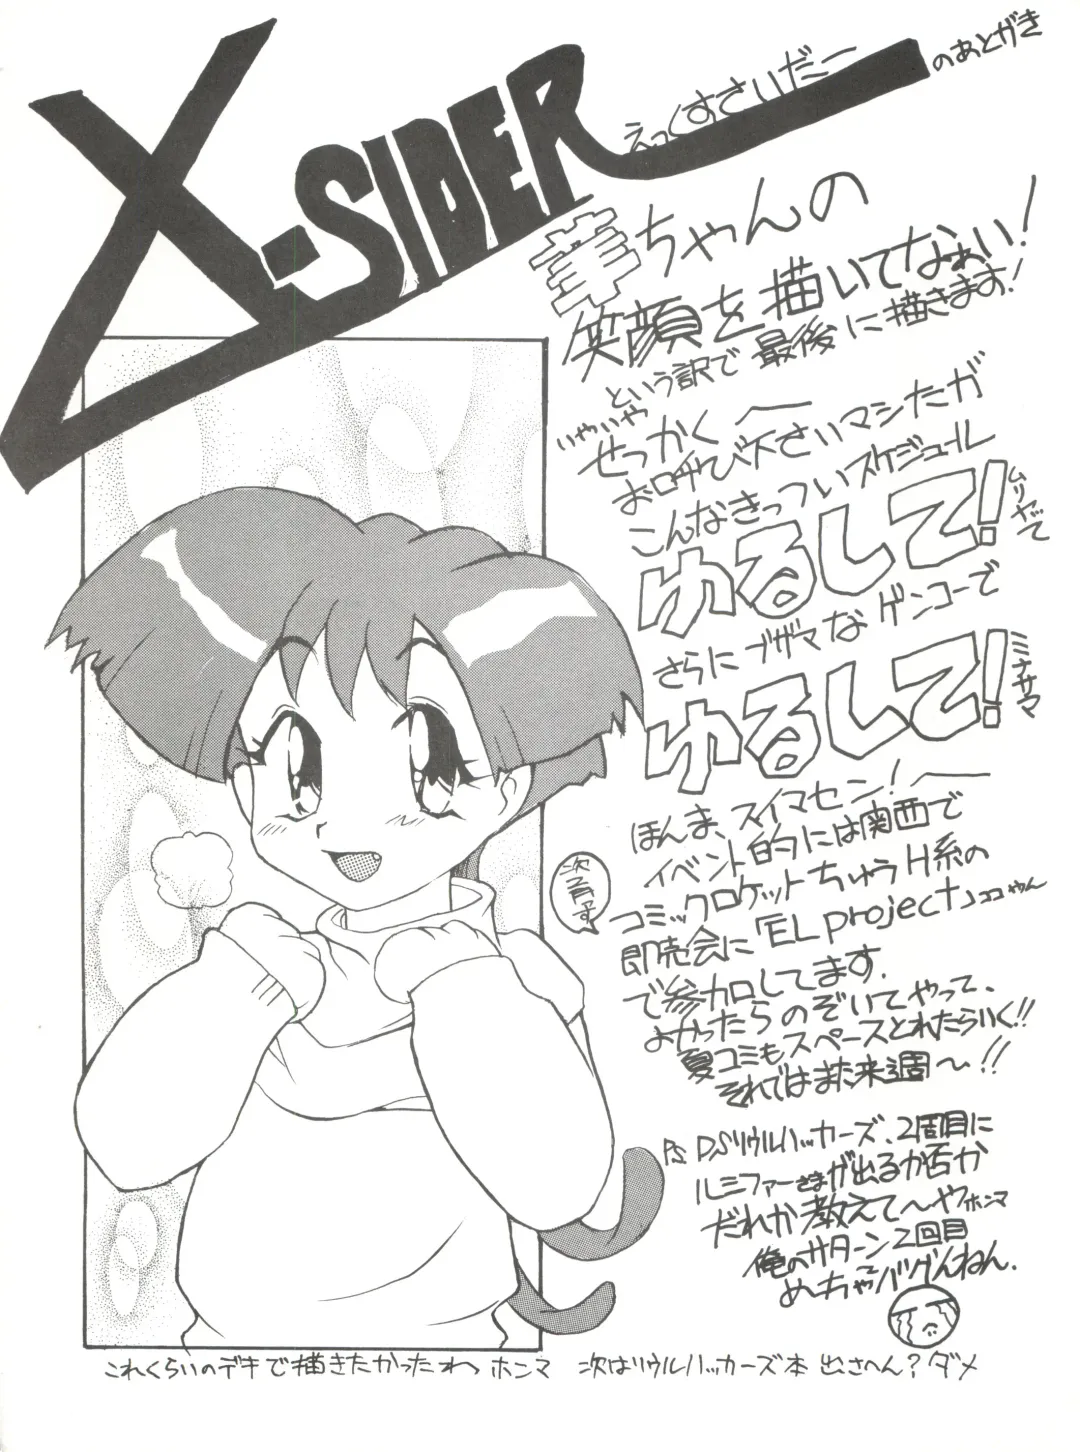 X-SIDER
えっくすさいだー
のあとがき
華ちゃんの
笑顔を描いてなぁい!
という訳で最後に描きます!
いやいや
せっかく
お呼び下さいマシたが
こんなきっついスケジュール
ゆるして!
ムリヤで
さらにブザマなゲンコーで
ゆるして!
ミナサマ
ほんま、スイマセン!
イベント的には関西で
コミックロケットちゅうH系の
即売会に「EL project」ココやん
で参加してます.
よかったらのぞいてやって、
夏コミもスペースとれたらいく!!
それではまた来週〜!!
PS DSソウルハッカーズ、2周目に
ルシファーさまが出るか否か
だれか教えて〜やホンマ
俺のサターン2回目
めーちゃバグんねん.
これくらいのデキで描きたかったわっ ホンマ 次はソウルハッカーズ本 出さへん?ダメ